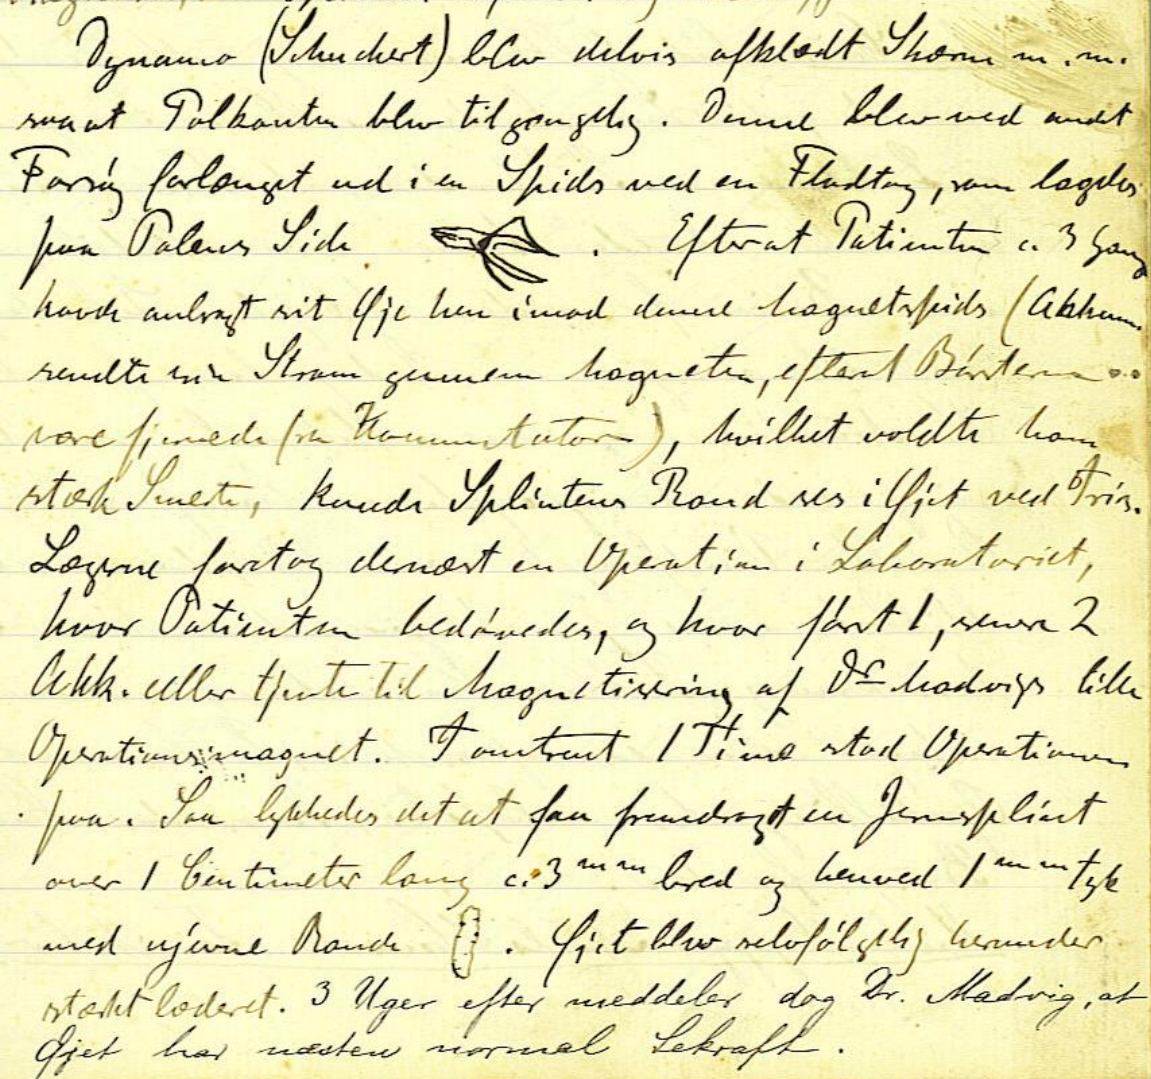 Dynamo (Schuckert) blev delvis afklædt Skærm m.m.
saa at Polkanten blev tilgængelig. Denne blev ved andet
Forsøg forlænget ud i en Spids ved en Fladtang, som lagdes
paa Polens Side . Efter at Patienten c. 3 Gang
havde anbragt sit Øje hen imod denne Magnetspids (Akkum.
sendte sin Strøm gennem Magneten, efterat Børsterne
vare fjernede fra Kommutatoren), hvilket voldte ham
stærk Smerte, kunde Splintens Rand ses i Øjet ved Iris.
Lægerne foretog dernæst en Operation i Laboratoriet,
hvor Patienten bedøvedes, og hvor først 1, senere 2
Akk. celler tjente til Magnetisering af Dr Madvigs lille
Operationsmagnet. I omtrent 1 Time stod Operationen
paa. Saa lykkedes det at faa fremdraget en Jernsplint
over 1 Centimeter lang c. 3 mm bred og henved 1 mm tyk
med ujevne Rande . Øjet blev selvfølgelig herunder
stærkt læderet. 3 Uger efter meddeler dog Dr. Madvig, at
Øjet har næsten normal Sekraft.